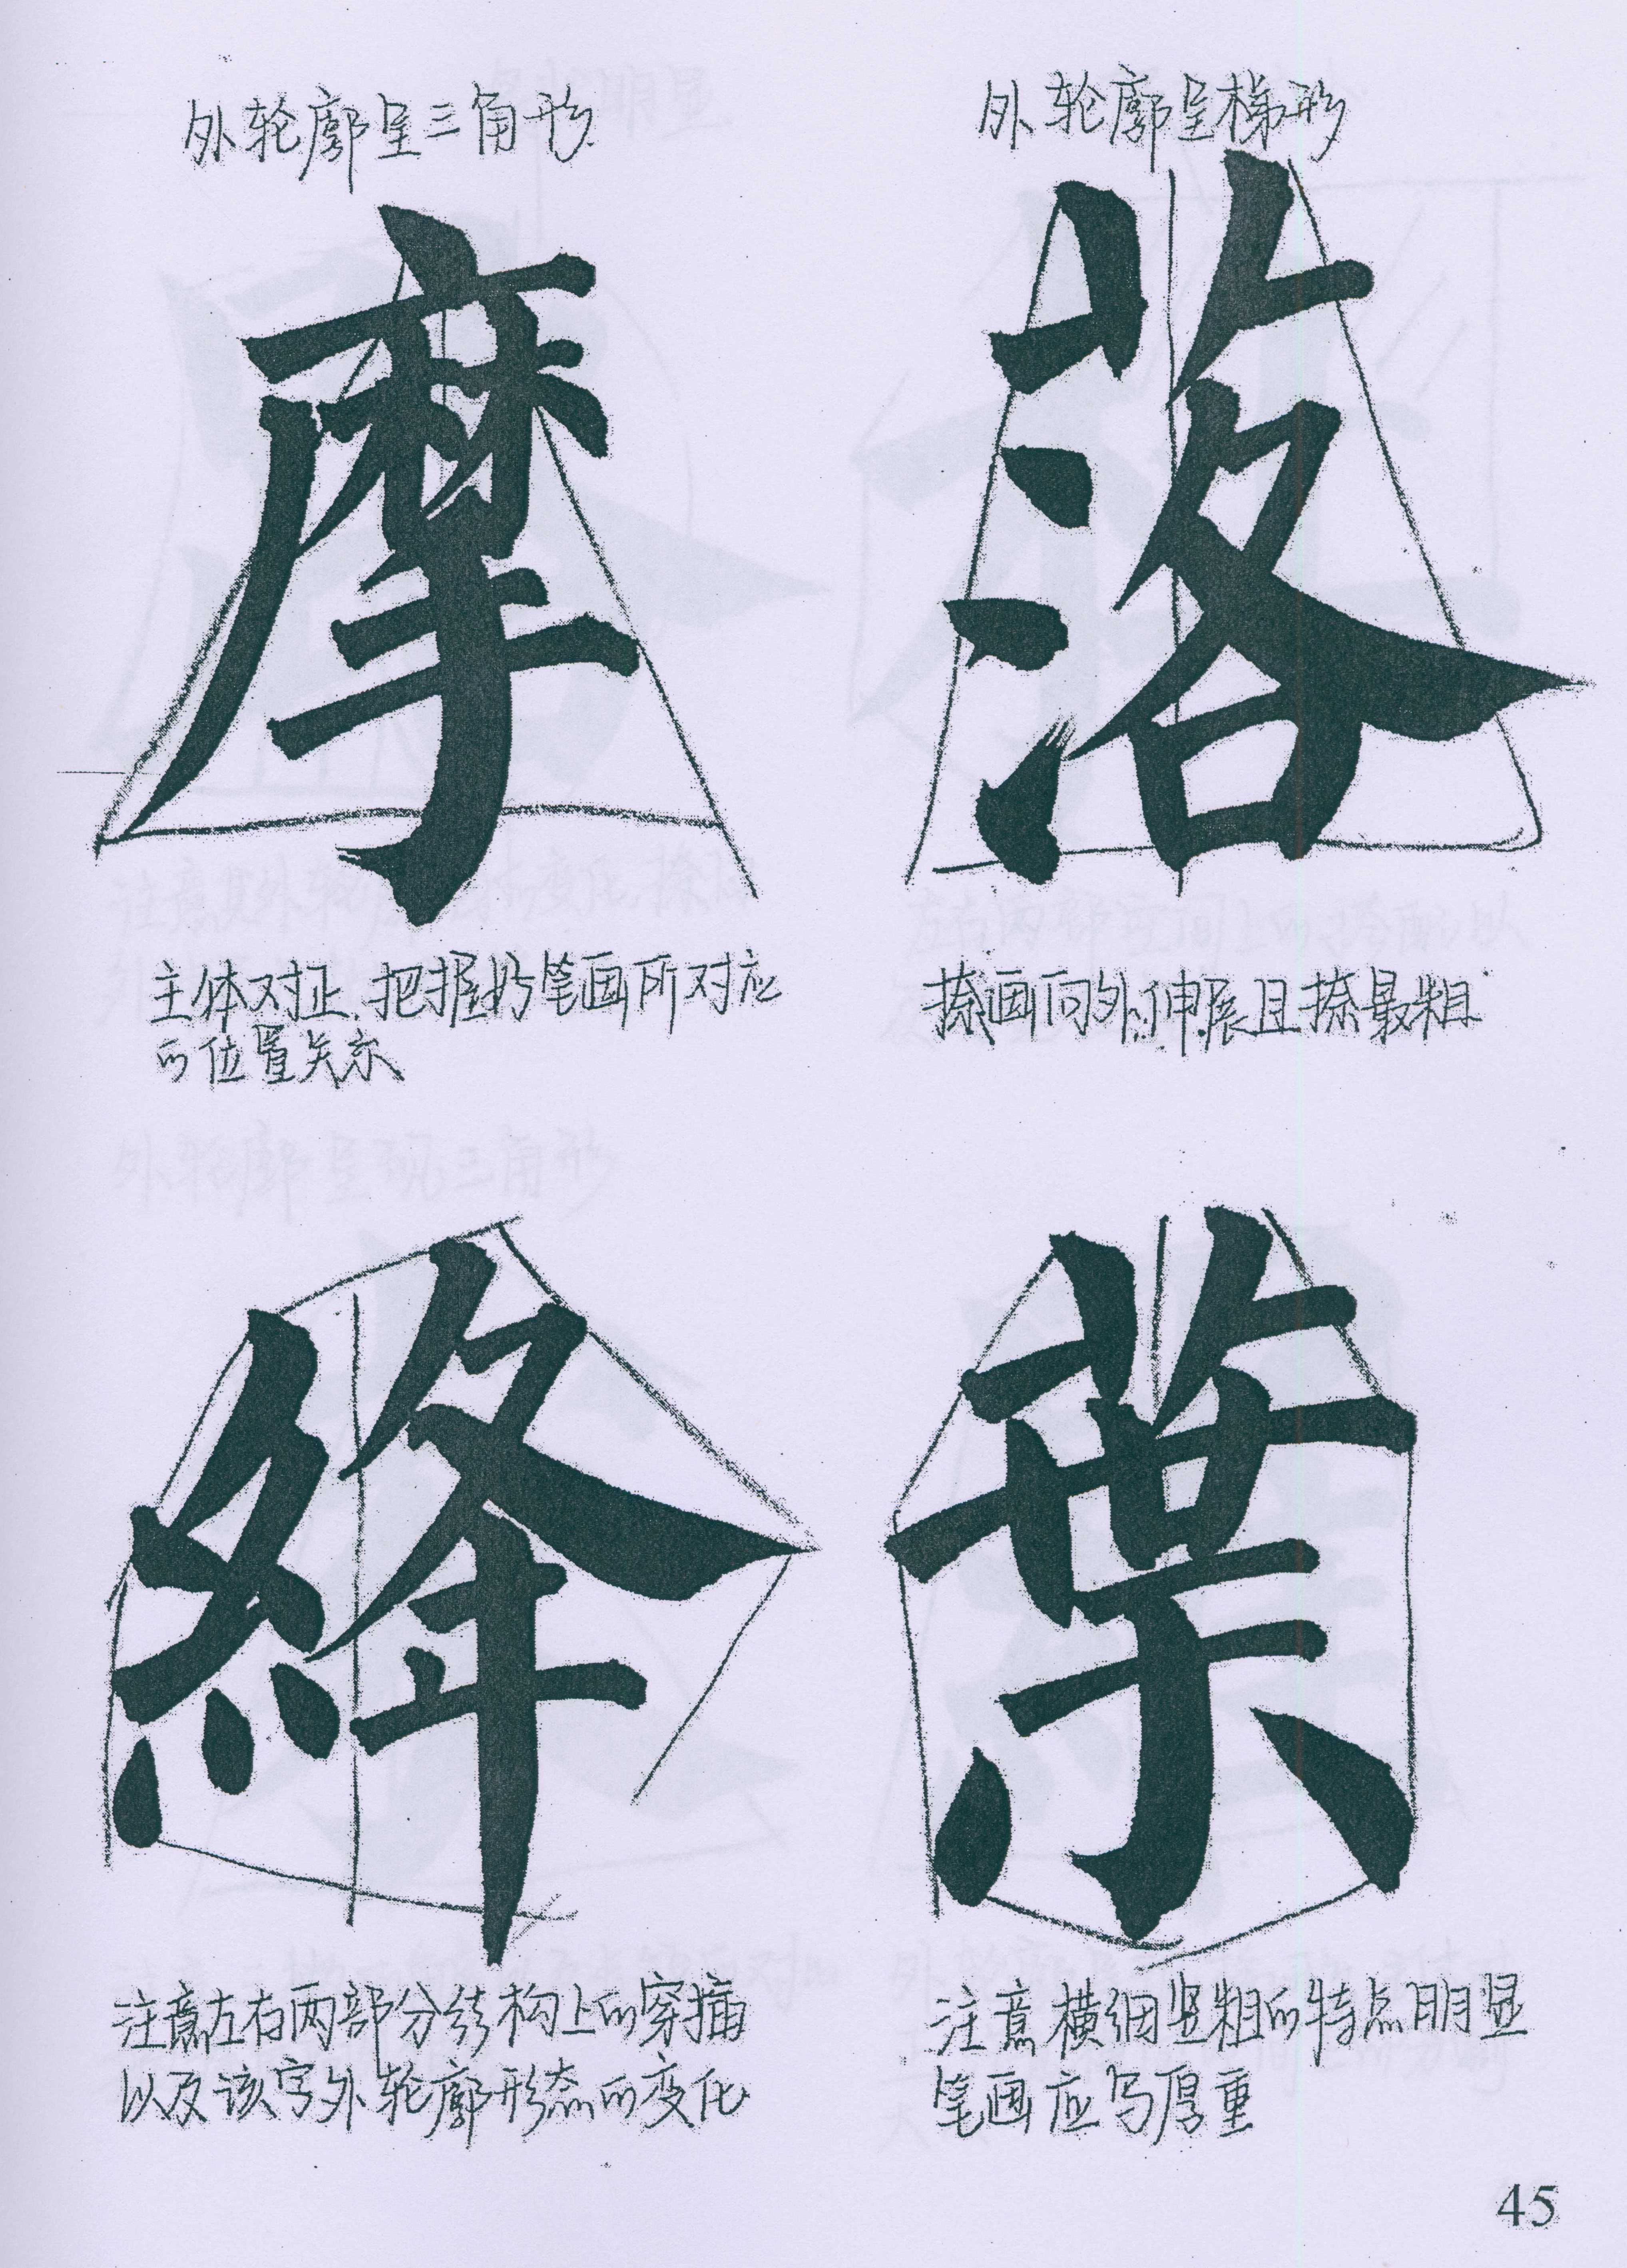 外轮廓呈三角形
外轮廓呈梯形
摩
落
主体对正.把握好笔画所对应
的位置关系
捺画向外伸展且捺最粗
絳
葉
注意左右两部分结构上的穿插
以及该字外轮廓形态的变化
注意横细竖粗的特点明显
笔画应写厚重
45